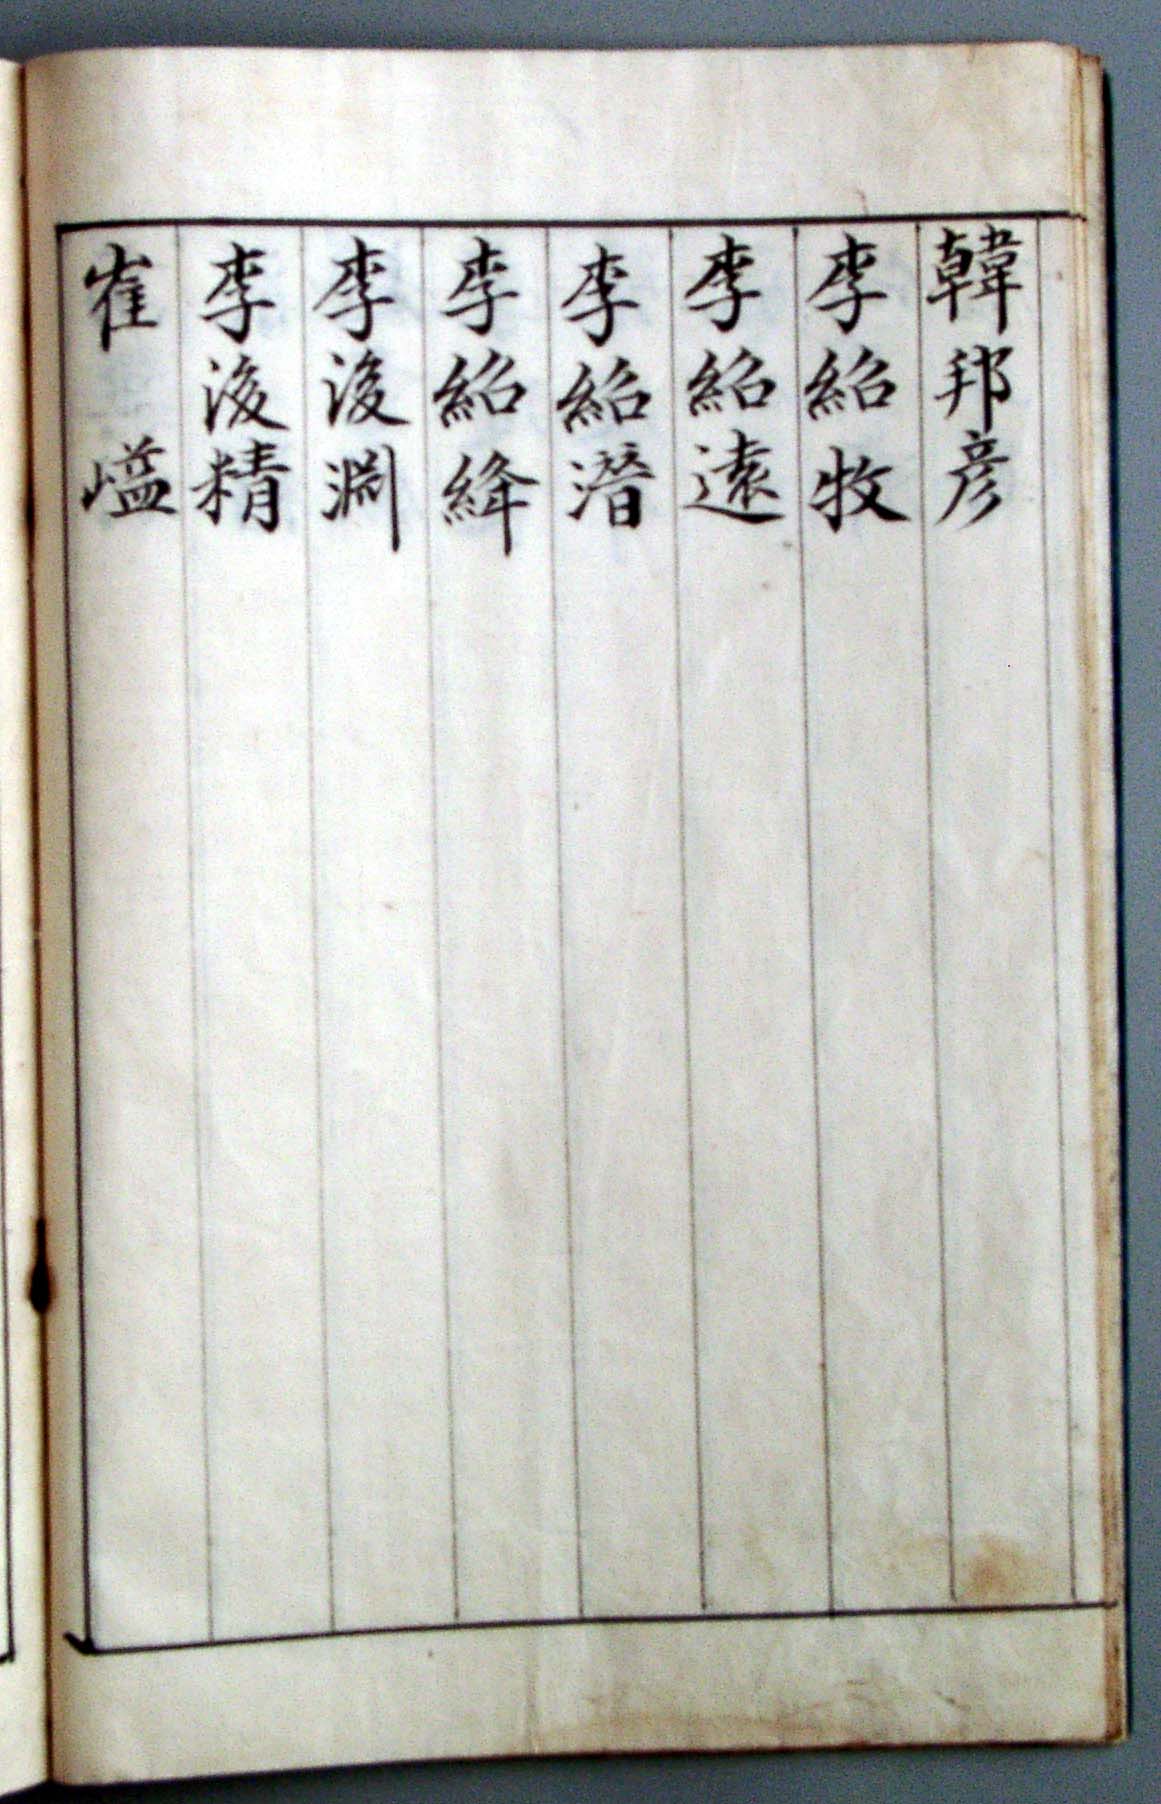 韓邦彦
李紹牧
李紹遠
李紹潛
李紹絳
李浚淵
李浚精
崔嵫